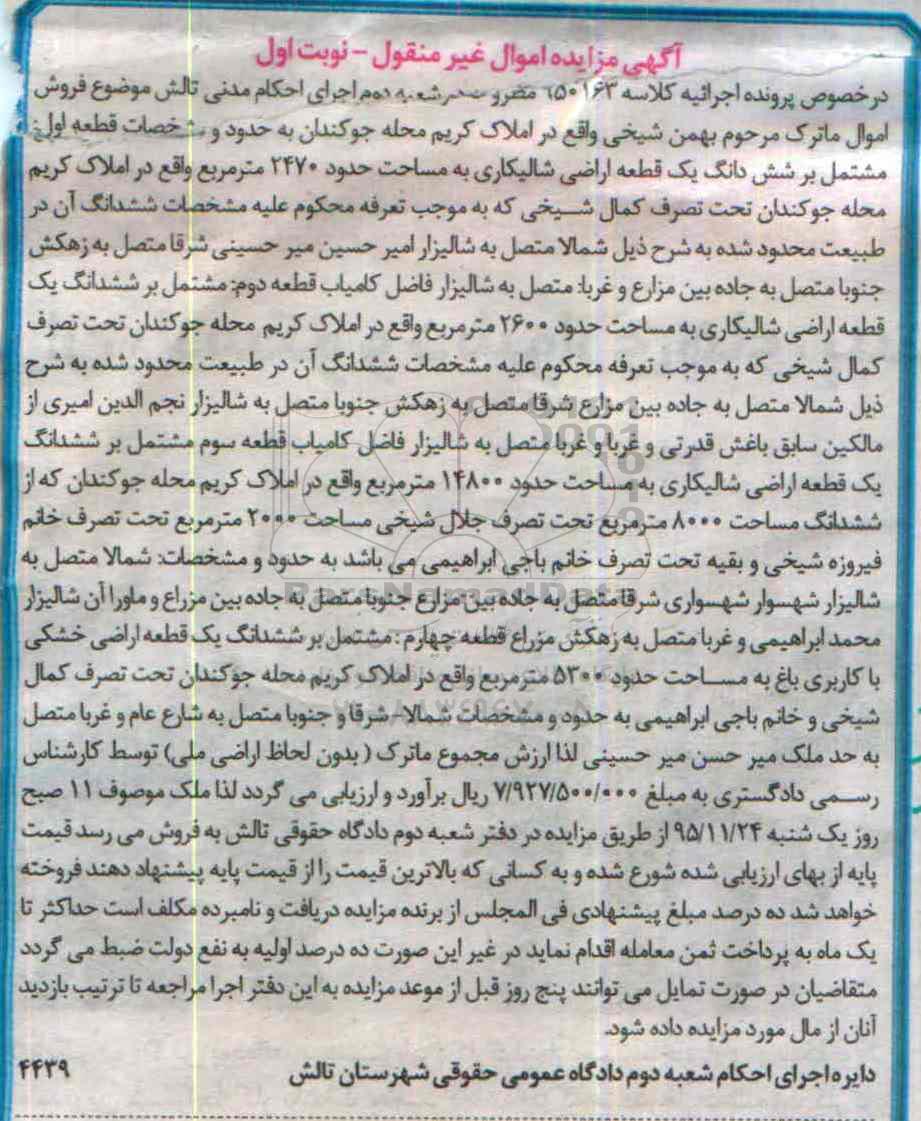 آگهی مزایده اموال غیر منقول - نوبت اول
در خصوص پرونده اجرائیه کلاسه ۶۵۰۱۶۳ دوم اجرای احکام مدنی تالش موضوع فروش
اموال ماترک مرحوم بهمن شیخی واقع در املاک کریم محله جوکندان به حدود و مشخصات قطعه اول:
مشتمل بر شش دانگ یک قطعه اراضی شالیکاری به مساحت حدود ۲۴۷۰ مترمربع واقع در املاک کریم
محله جوکندان تحت تصرف کمال شیخی که به موجب تعرفه محکوم علیه مشخصات ششدانگ آن در
طبیعت محدود شده به شرح ذیل شمالا متصل به شالیزار امیر حسین میر حسینی شرقا متصل به زهکش
جنوبا متصل به جاده بین مزارع و غربا: متصل به شالیزار فاضل کامیاب قطعه دوم: مشتمل بر ششدانگ یک
قطعه اراضی شالیکاری به مساحت حدود ۲۶۰۰ مترمربع واقع در املاک کریم محله جوکندان تحت تصرف
کمال شیخی که به موجب تعرفه محکوم علیه مشخصات ششدانگ آن در طبیعت محدود شده به شرح
ذیل شمالا متصل به جاده بین مزارع شرقا متصل به زهکش جنوبا متصل به شالیزار نجم الدین امیری از
مالکین سابق باغش قدرتی و غربا و غربا متصل به شالیزار فاضل کامیاب قطعه سوم مشتمل بر ششدانگ
یک قطعه اراضی شالیکاری به مساحت حدود ۱۴۸۰۰ مترمربع واقع در املاک کریم محله جوکندان که از
ششدانگ مساحت ۸۰۰۰ مترمربع تحت تصرف جلال شیخی مساحت ۲۰۰۰ مترمربع تحت تصرف خانم
فیروزه شیخی و بقیه تحت تصرف خانم باجی ابراهیمی می باشد به حدود و مشخصات: شمالا متصل به
شالیزار شهسوار شهسواری شرقا متصل به جاده بین مزارع جنوبا متصل به جاده بین مزراع و ماورا آن شالیزار
محمد ابراهیمی و غربا متصل به زهکش مزراع قطعه چهارم : مشتمل بر ششدانگ یک قطعه اراضی خشکی
با کاربری باغ به مساحت حدود ۵۳۰۰ مترمربع واقع در املاک کریم محله جوکندان تحت تصرف کمال
شیخی و خانم باجی ابراهیمی به حدود و مشخصات شمالا - شرقا و جنوبا متصل به شارع عام و غربا متصل
به حد ملک میر حسن میر حسینی لذا ارزش مجموع ماترک ( بدون لحاظ اراضی ملی) توسط کارشناس
رسمی دادگستری به مبلغ ۷/۹۲۷/۵۰۰/۰۰۰ ریال برآورد و ارزیابی می گردد لذا ملک موصوف ۱۱ صبح
روز یک شنبه ۹۵/۱۱/۲۴ از طریق مزایده در دفتر شعبه دوم دادگاه حقوقی تالش به فروش می رسد قیمت
پایه از بهای ارزیابی شده شورع شده و به کسانی که بالاترین قیمت را از قیمت پایه پیشنهاد دهند فروخته
خواهد شد ده درصد مبلغ پیشنهادی فی المجلس از برنده مزایده دریافت و نامبرده مکلف است حداکثر تا
یک ماه به پرداخت ثمن معامله اقدام نماید در غیر این صورت ده درصد اولیه به نفع دولت ضبط می گردد
متقاضیان در صورت تمایل می توانند پنج روز قبل از موعد مزایده به این دفتر اجرا مراجعه تا ترتیب بازدید
آنان از مال مورد مزایده داده شود.
دایره اجرای احکام شعبه دوم دادگاه عمومی حقوقی شهرستان تالش ۴۴۳۹